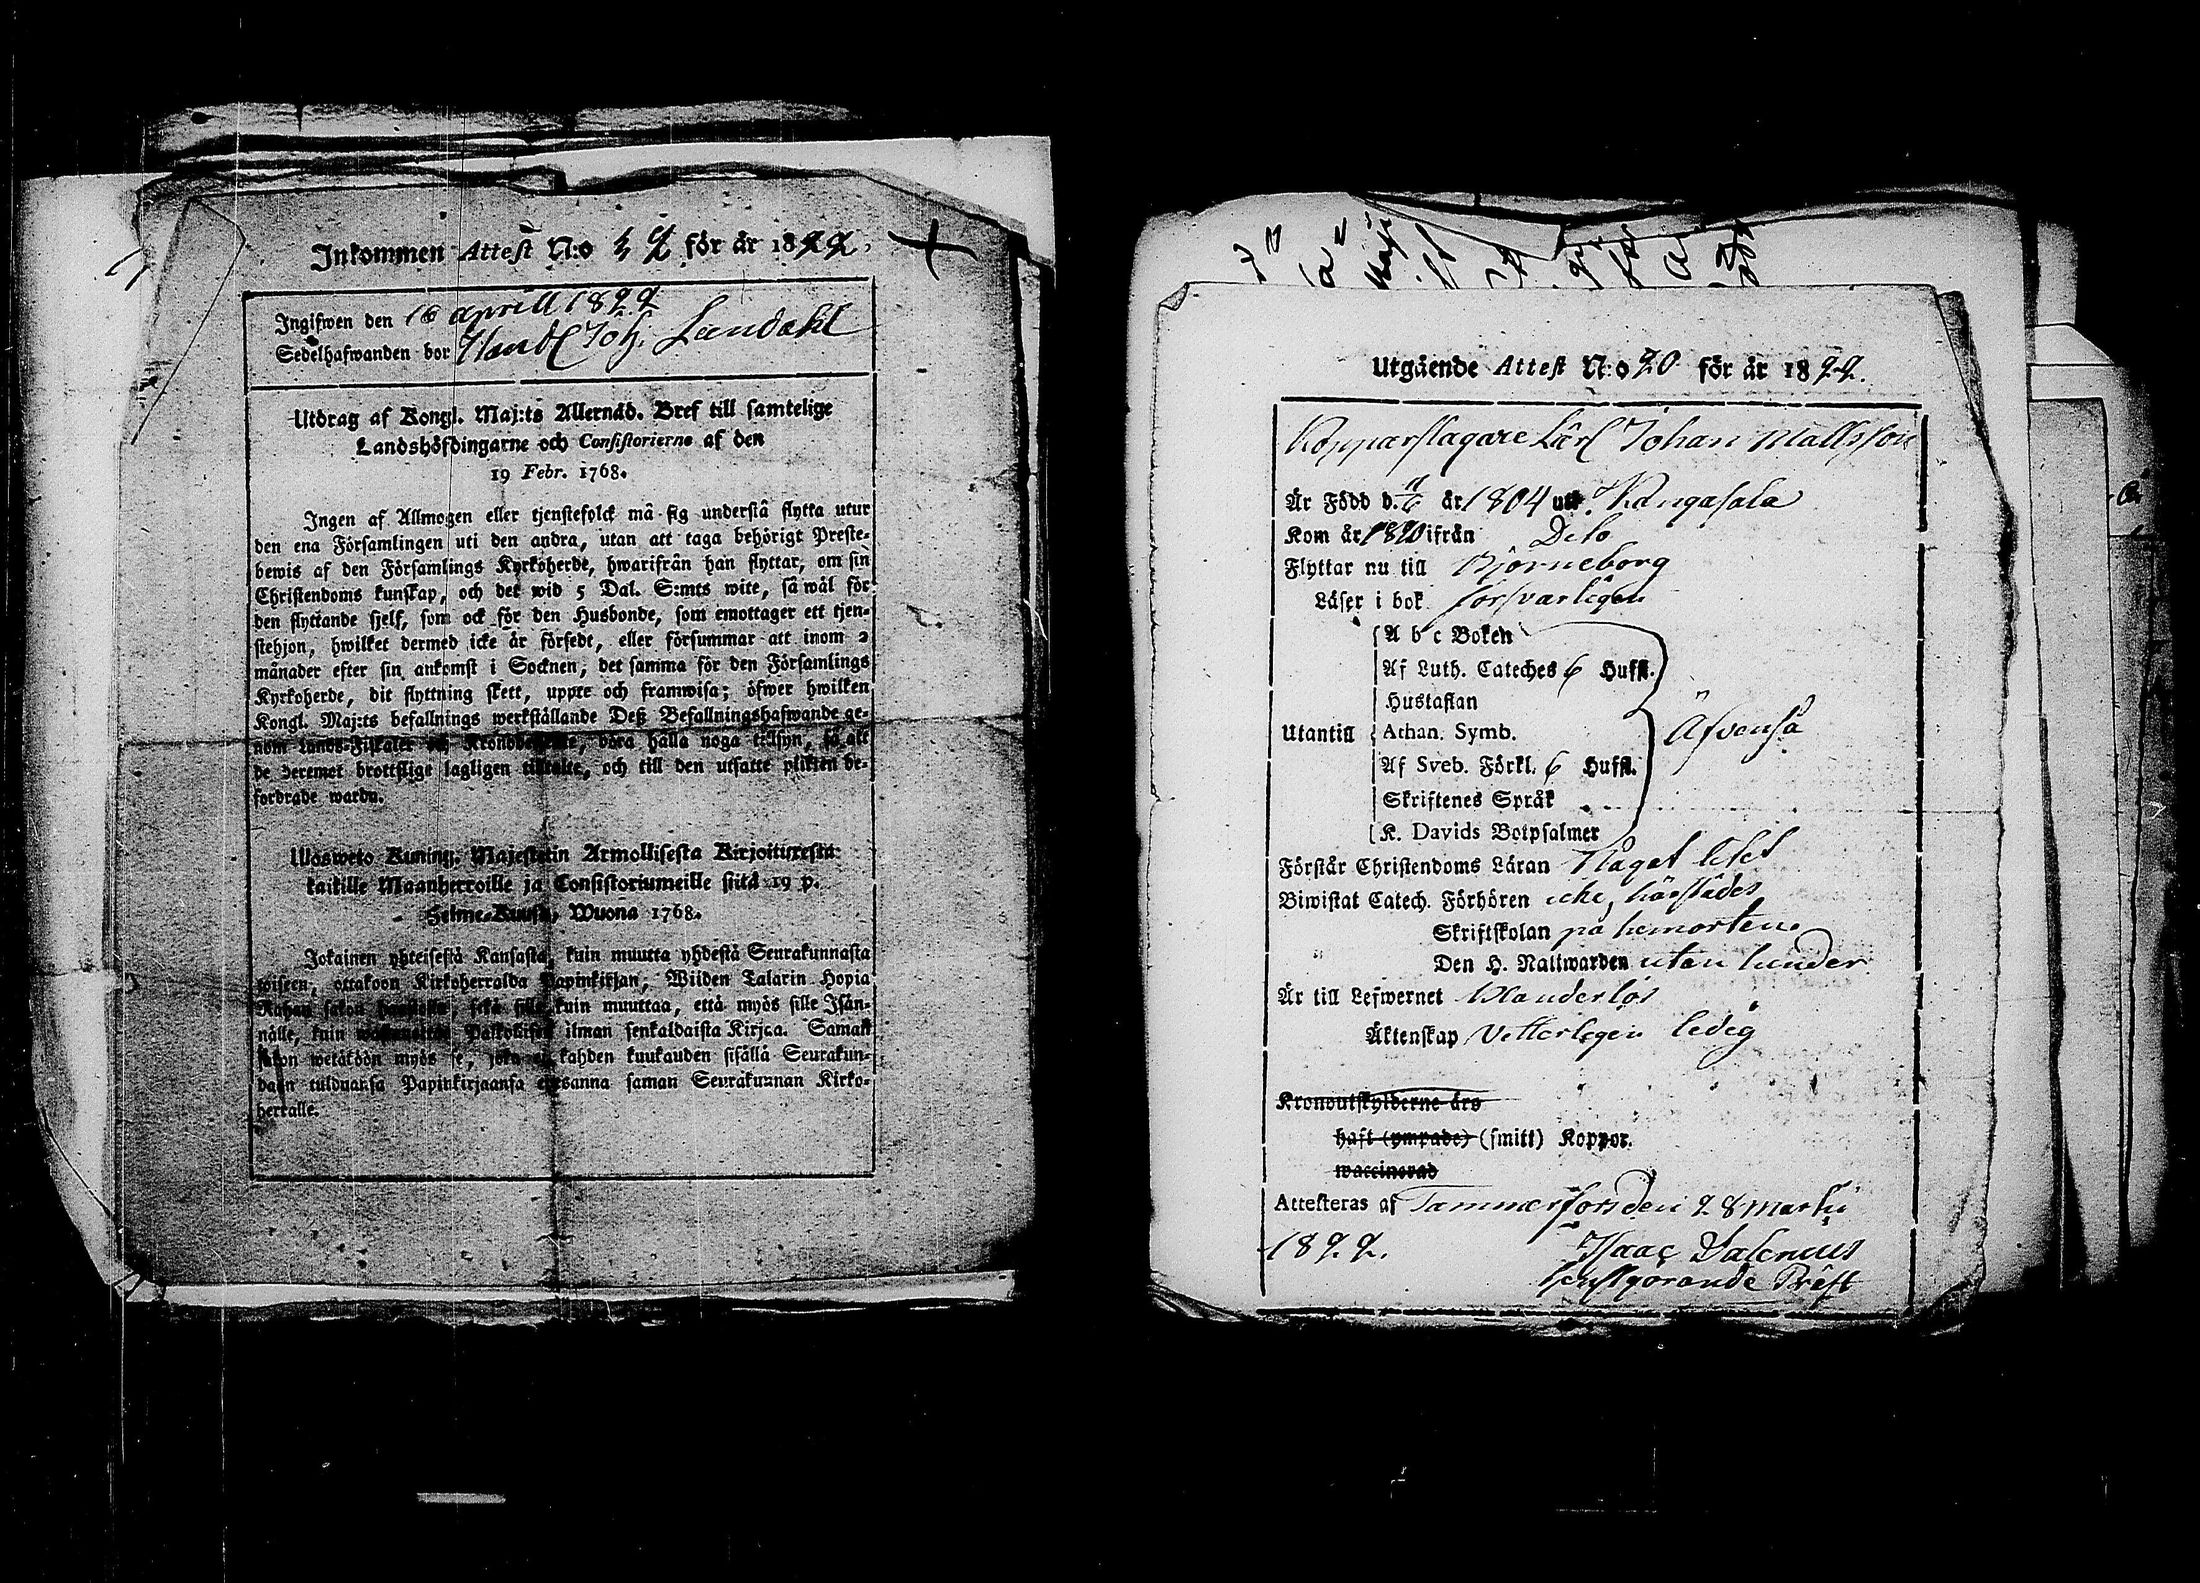 Inkommen Attest N:o 32 för år 1822.
Ingifwen den 16 Aprill 1822
Sedelhafwanden bor Handl Joh. Landahl
Utdrag af Kongl. Maj:ts Allernåd. Bref till samtelige
Landshöfdingarne och Consistorierne af den
19 Febr. 1768.
Ingen af Allmogen eller tjenstefolck må sig understå flytta utur
den ena Församlingen uti den andra, utan att taga behörigt Preste-
bewis af den Församlings Kyrkoherde, hwarifrån han flyttar, om sin
Christendoms kunskap, och det wid 5 Dal. S:mts wite, så wäl för
den flyttande sjelf, som ock för den Husbonde, som emottager ett tjen-
stehjon, hwilket dermed icke är försedt, eller försummar att inom 2
månader efter sin ankomst i Socknen, det samma för den Församlings
Kyrkoherde, dit flyttning skett, uppte och framwisa; öfwer hwilken
Kongl. Maj:ts befallnings werkställande Deß Befallningshafwande ge-
nom Lands-Fiskaler och Kronobetjente, böra hålla noga tillsyn, så att
de deremot brottslige lagligen tilltalte, och till den utsatte plikten be-
fordrade warda.
Ulosweto Kuning. Majestetin Armollisesta Kirjoituxesta
kaikille Maanherroille ja Consistoriumeille siitä 19 p.
Helme-Kuusa, Wuona 1768.
Jokainen yhteisestä Kansasta, kuin muutta yhdestä Seurakunnasta
toiseen, ottakoon Kirkoherralda Papinkirjan, Wiiden Talarin Hopia
Rahan sakon haastolla, sekä sille kuin muuttaa, että myös sille Isän-
nälle, kuin Palkolisen ilman senkaldaista Kirjaa. Saman
sakon wetäköön myös se, joka ei kahden kuukauden sisällä Seurakun-
daan tulduansa Papinkirjaansa edesanna saman Seurakunnan Kirko-
herralle.
Utgående Attest N:o 20 för år 1822.
Kopparslagare Lärl Johan Mattsson
Är Född d. år 1804 uti Kangasala
Kom år 1820 ifrån Dito
Flyttar nu till Björneborg
Läser i bok försvarligen
A b c Boken
Af Luth. Cateches 6 Hufst.
Hustaflan
Utantill Athan. Symb. Äfvenså
Af Sveb. Förkl. 6 Hufst.
Skriftenes Språk
K. Davids Botpsalmer
Förstår Christendoms Läran Något litet
Biwistat Catech. Förhören icke härstädes
Skriftskolan på hemorten
Den H. Nattwarden utan hinder
Är till Lefwernet Klanderlös
Äktenskap Vetterligen ledig
Kronoutskylderne äro
haft (ympade) (smitt) Koppor.
waccinerad
Attesteras af Tammerfors den 28 Martii
1822. Isaac Salenius
tenstgörande Präst